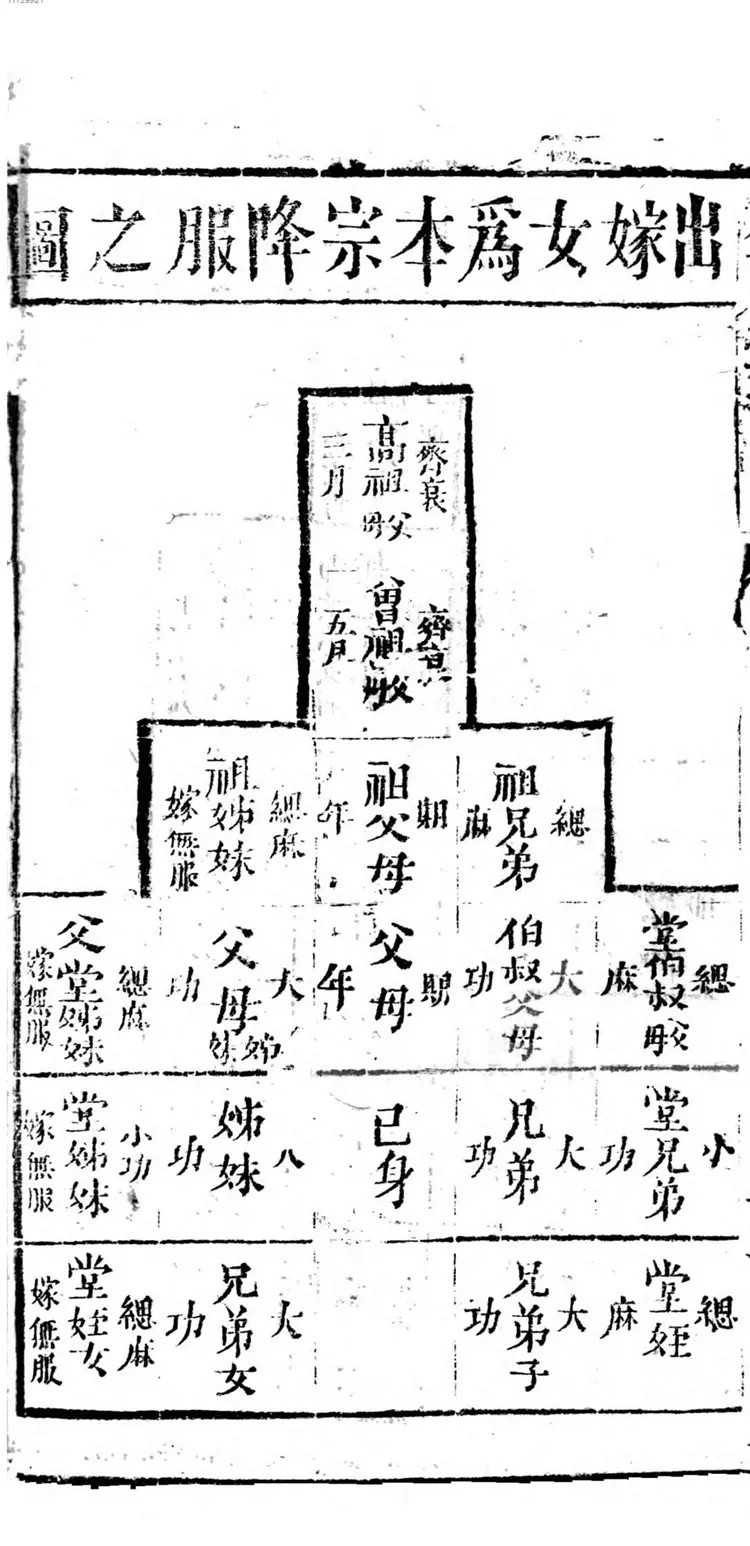 11129921
出嫁女爲本宗降服之圖
齊衰 高祖父母 三月
齊衰 曾祖父母 五月
緦麻 祖兄弟
期年 祖父母
緦麻 祖姊妹 嫁無服
緦麻 堂伯叔父母
大功 伯叔父母
期年 父母
大功 父母姊妹
緦麻 父堂姊妹 嫁無服
小功 堂兄弟
大功 兄弟
己身
大功 姊妹
小功 堂姊妹 嫁無服
緦麻 堂姪
大功 兄弟子
大功 兄弟女
緦麻 堂姪女 嫁無服